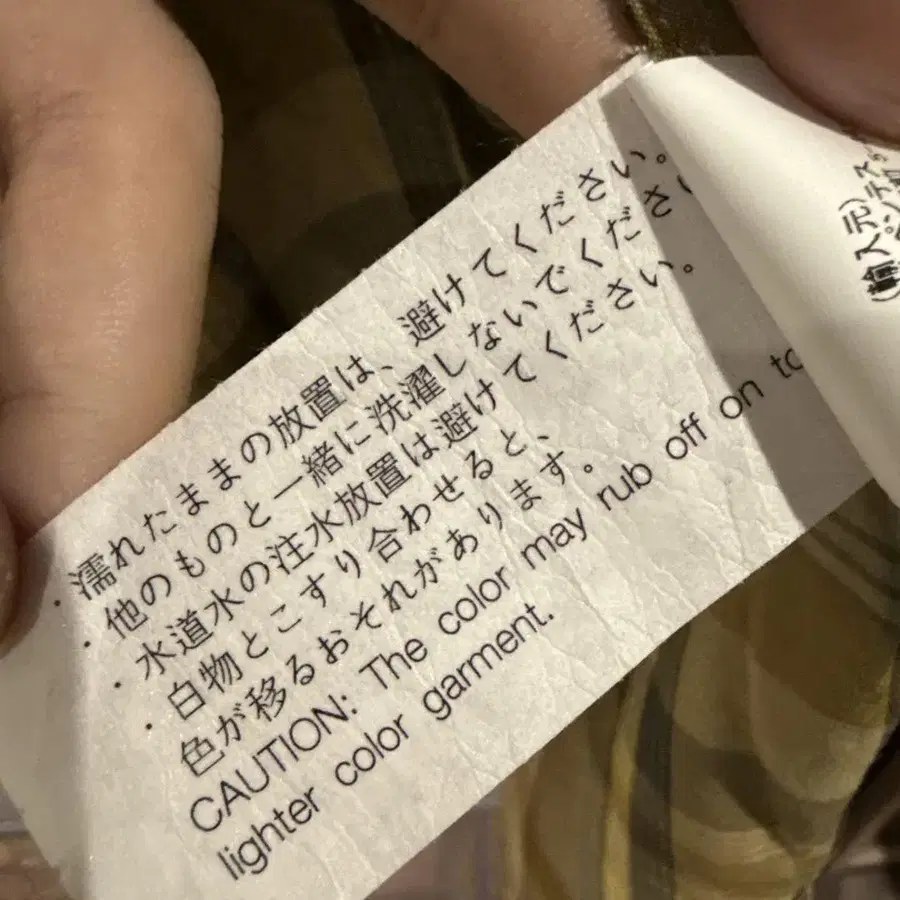 ・濡れたままの放置は、避けてください。
・他のものと一緒に洗濯しないでください
・水道水の注水放置は避けてください。
・白物とこすり合わせると、
色が移るおそれがあります。
CAUTION: The color may rub off on to
lighter color garment.
(輸入元)